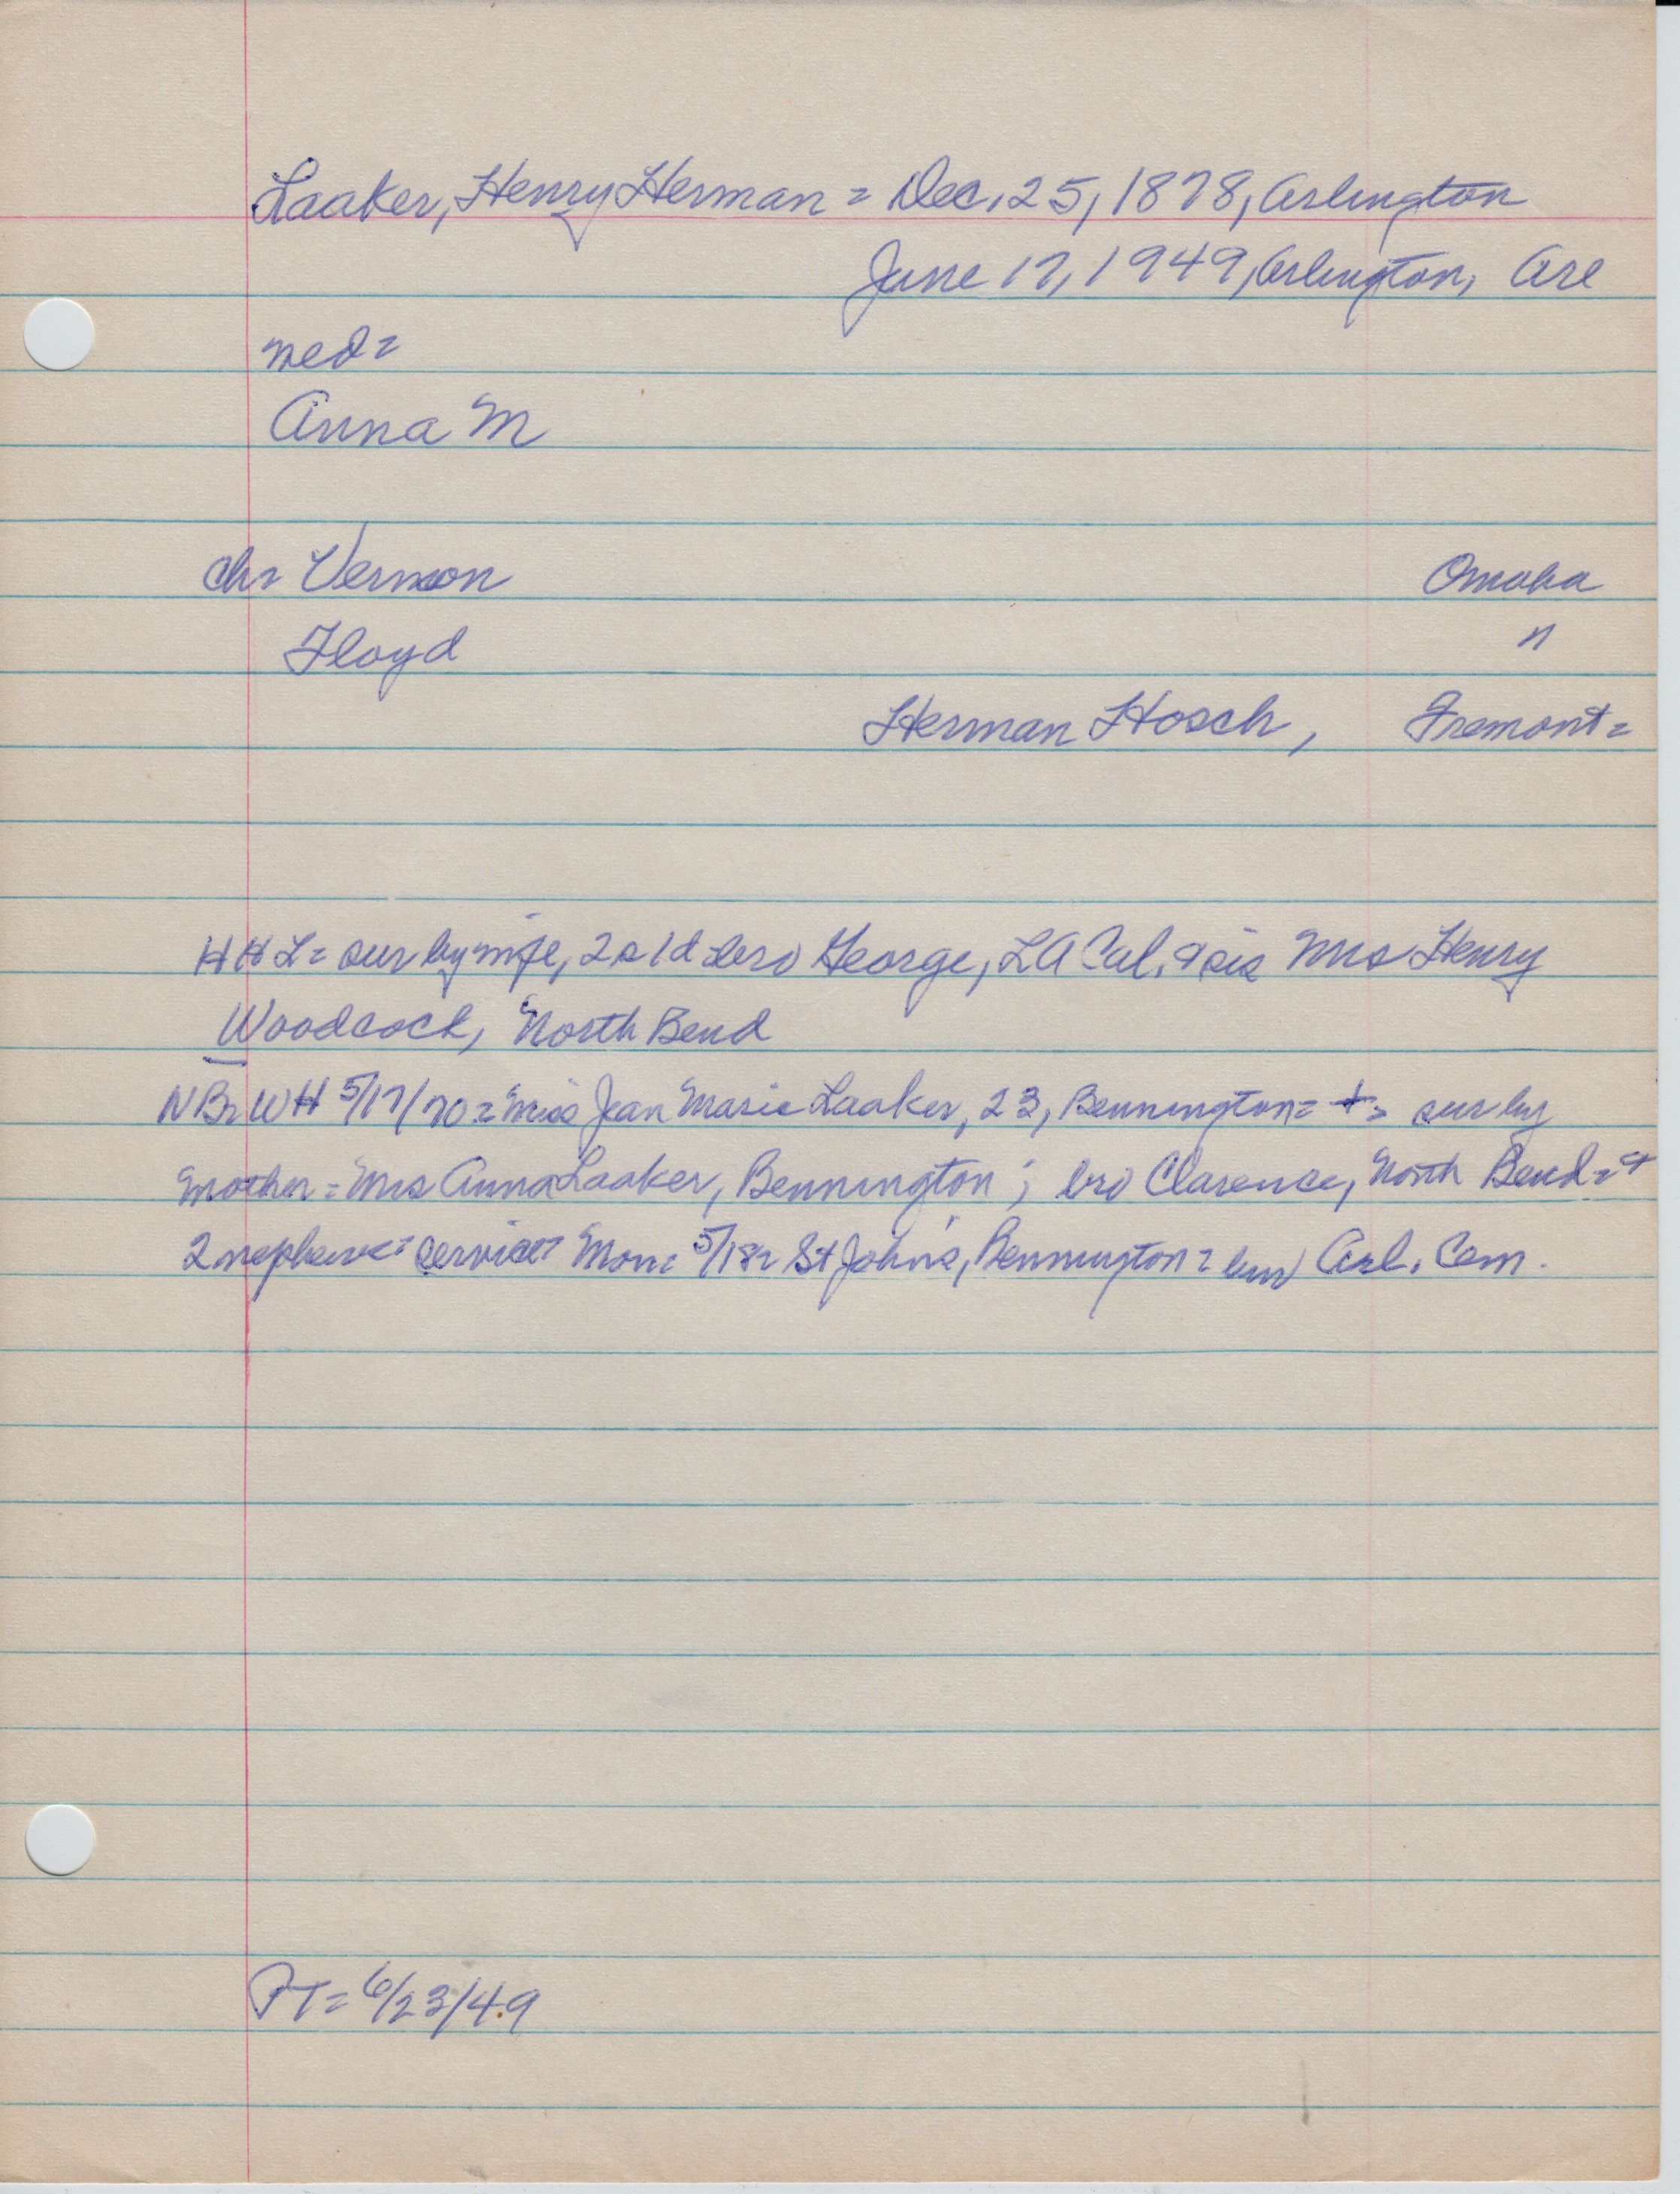 Laaker, Henry Herman = Dec. 25, 1878, Arlington
June 17, 1949, Arlington, Arl
wed =
Anna M
ch = Vernon Omaha
Floyd "
Herman Hosch, Fremont =
HHL = sur by wife, 2s 1d bro George, LA Cal. & sis Mrs Henry
Woodcock, North Bend
NB = WH 5/17/70 = Miss Jean Marie Laaker, 23, Bennington = + = sur by
mother = Mrs Anna Laaker, Bennington ; bro Clarence, North Bend = &
2 nephews = service = Mon = 5/18 = St John's, Bennington = bur Arl. Cem.
PT = 6/23/49